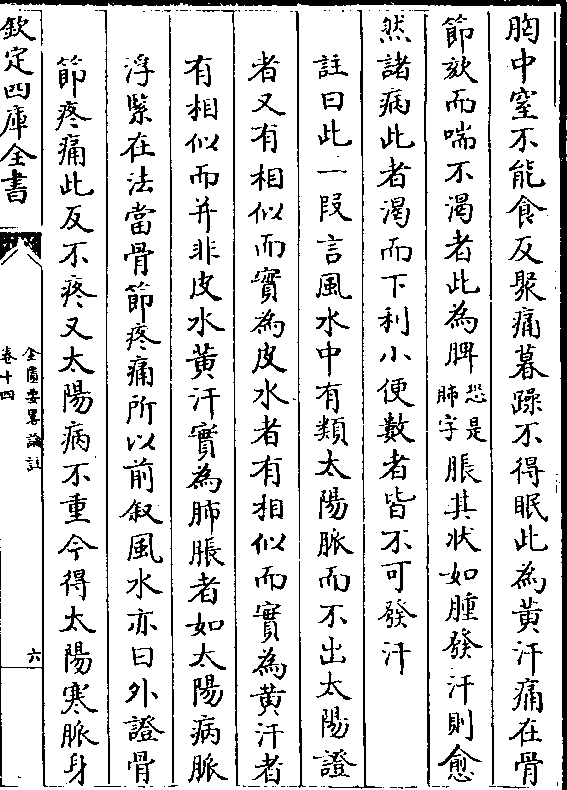 胸中窒不能食反聚痛暮躁不得眠此為黃汗痛在骨
節欬而喘不渴者此為脾恐是肺字脹其狀如腫發汗則愈
然諸病此者渴而下利小便數者皆不可發汗
註曰此一段言風水中有類太陽脈而不出太陽證
者又有相似而實為皮水者有相似而實為黃汗者
有相似而并非皮水黃汗實為肺脹者如太陽病脈
浮緊在法當骨節疼痛所以前叙風水亦曰外證骨
節疼痛此反不疼又太陽病不重今得太陽寒脈身
欽定四庫全書
金匱要畧論註
卷十四
六